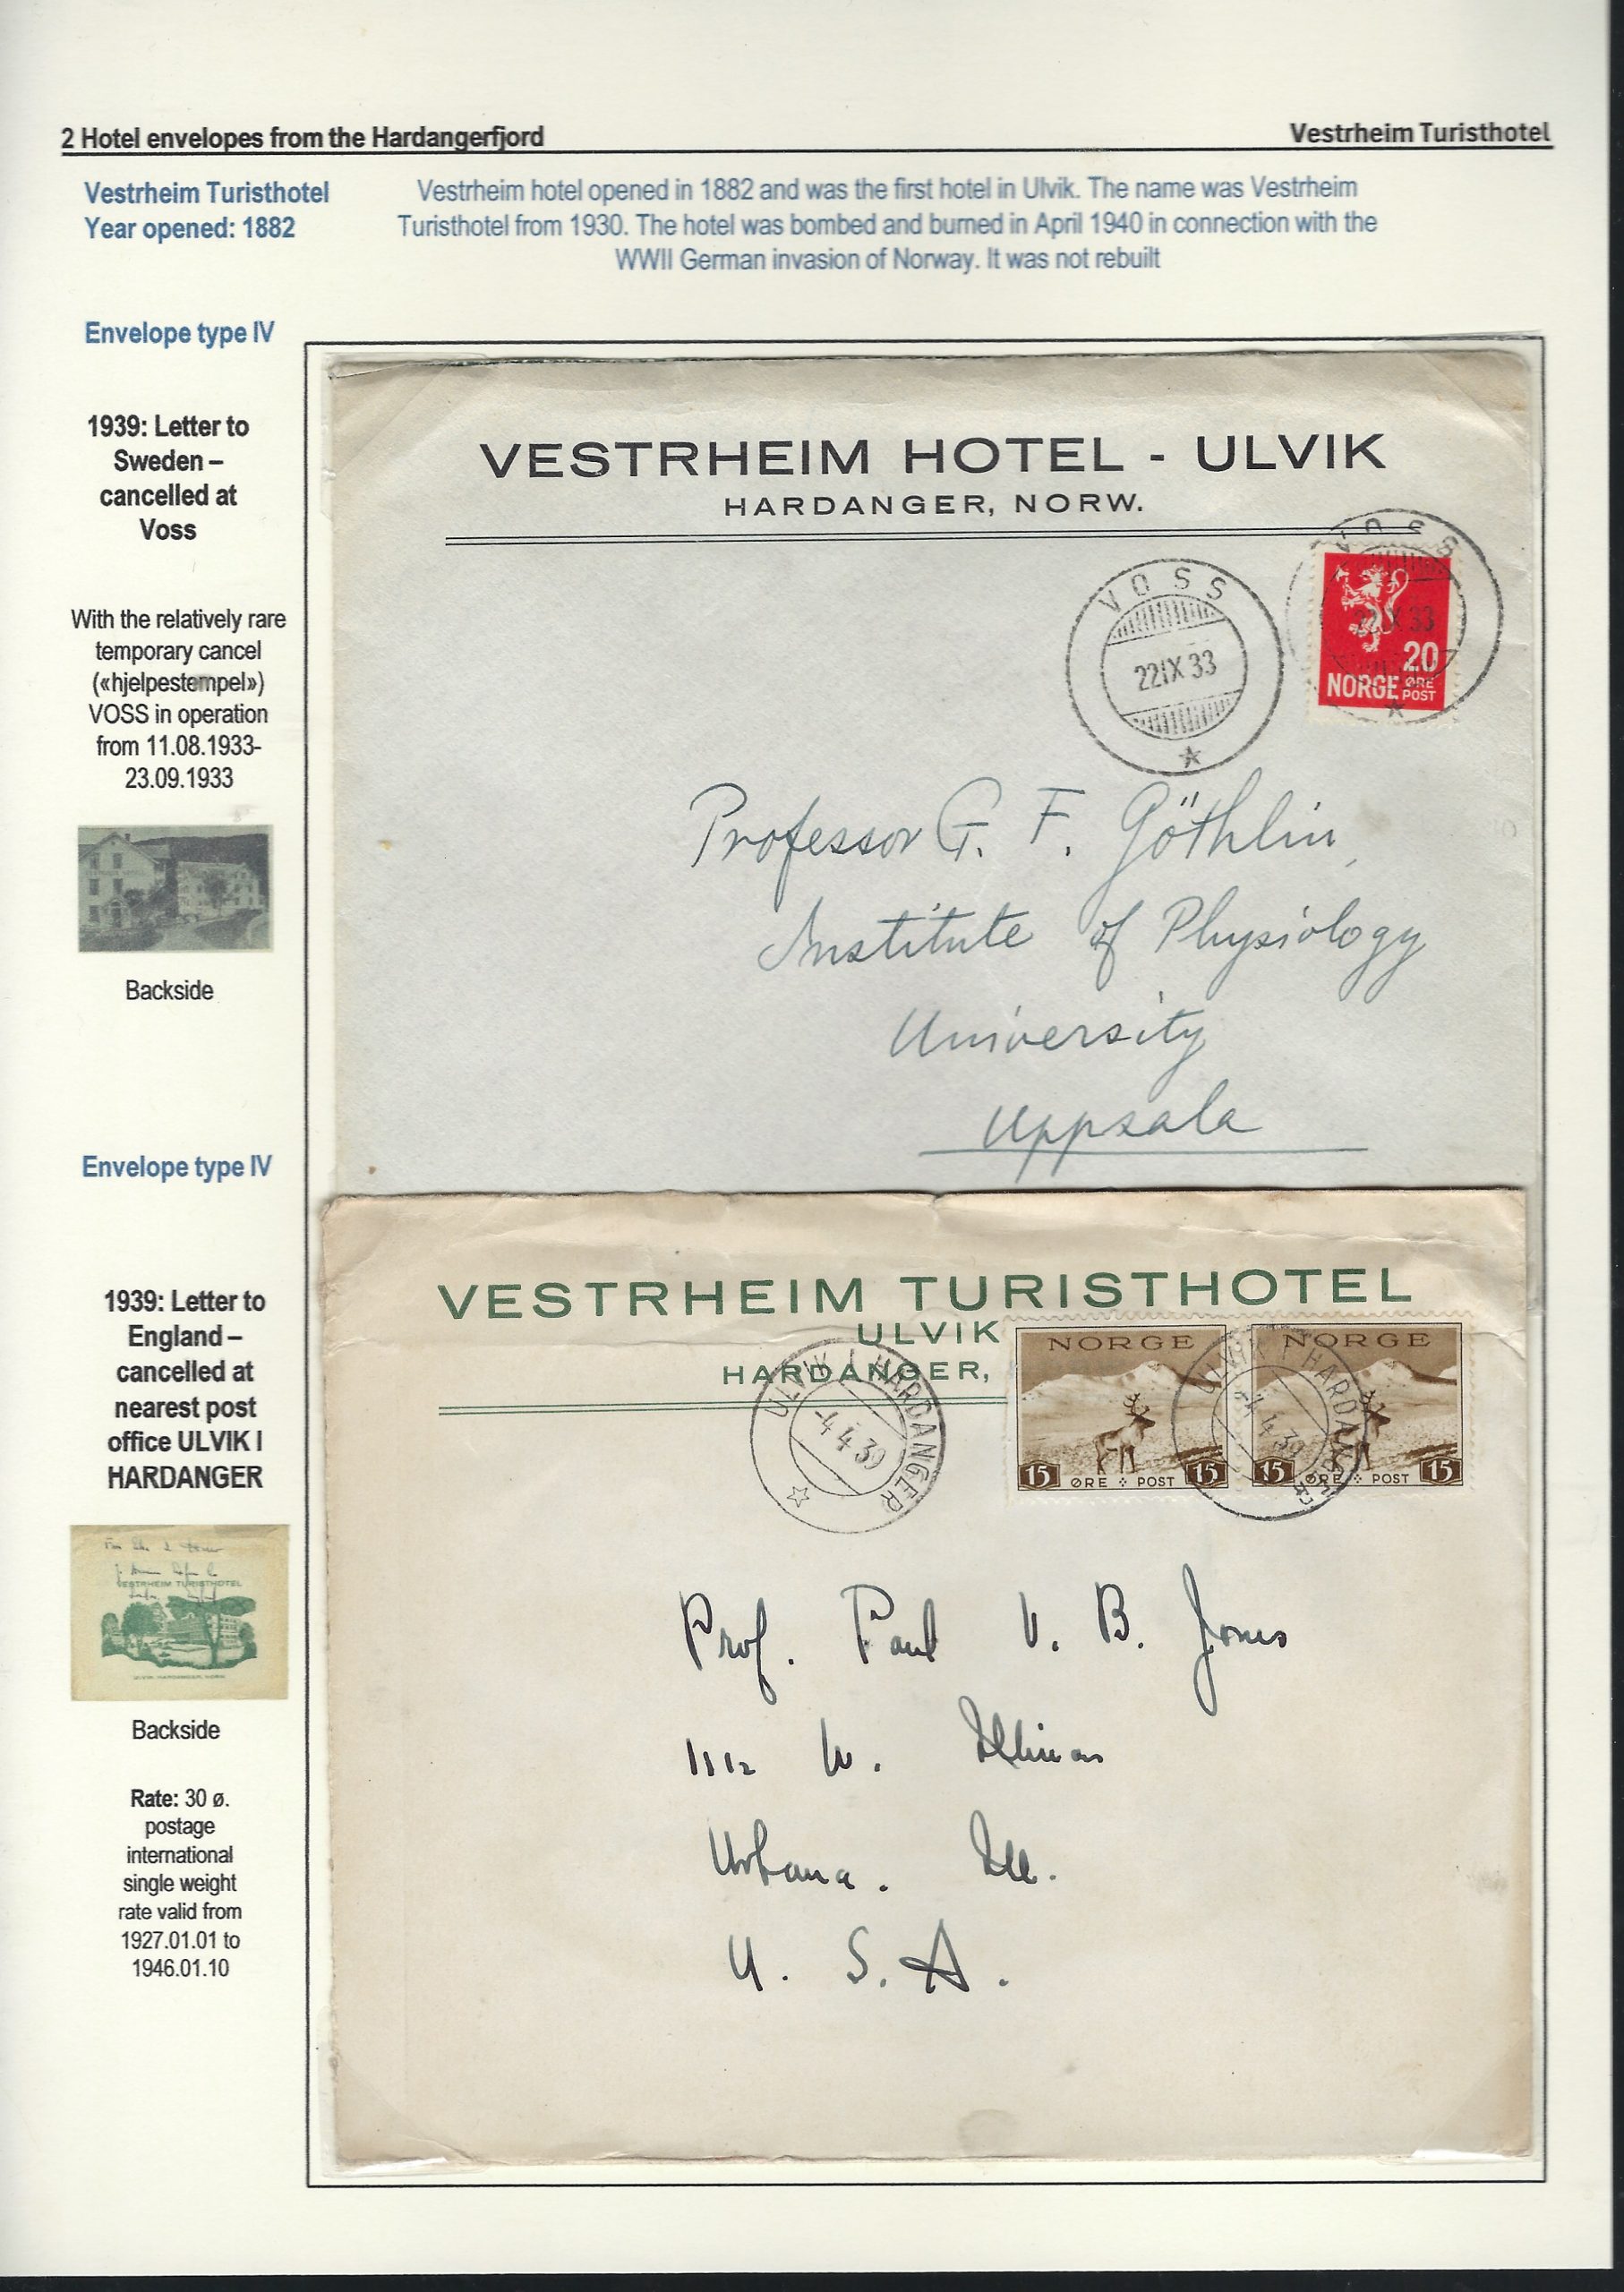 2 Hotel envelopes from the Hardangerfjord
Vestrheim Turisthotel
Vestrheim Turisthotel
Year opened: 1882
Vestrheim hotel opened in 1882 and was the first hotel in Ulvik. The name was Vestrheim
Turisthotel from 1930. The hotel was bombed and burned in April 1940 in connection with the
WWII German invasion of Norway. It was not rebuilt
Envelope type IV
1939: Letter to
Sweden –
cancelled at
Voss
With the relatively rare
temporary cancel
(«hjelpestempel»)
VOSS in operation
from 11.08.1933-
23.09.1933
Backside
VESTRHEIM HOTEL - ULVIK
HARDANGER, NORW.
VOSS
22IX 33
VOSS
22IX 33
20
NORGE ØRE
POST
Professor G. F. Göthlin,
Institute of Physiology
University
Uppsala
Envelope type IV
1939: Letter to
England –
cancelled at
nearest post
office ULVIK I
HARDANGER
VESTRHEIM TURISTHOTEL
ULVIK HARDANGER, NORW.
Backside
Rate: 30 ø.
postage
international
single weight
rate valid from
1927.01.01 to
1946.01.10
VESTRHEIM TURISTHOTEL
ULVIK
HARDANGER,
ULVIK I HARDANGER
-4 4 39
NORGE
15 ØRE POST 15
NORGE
15 ØRE POST 15
ULVIK I HARDANGER
-4 4 39
Prof. Paul V. B. Jones
1112 W. Illinois
Urbana. Ill.
U. S. A.